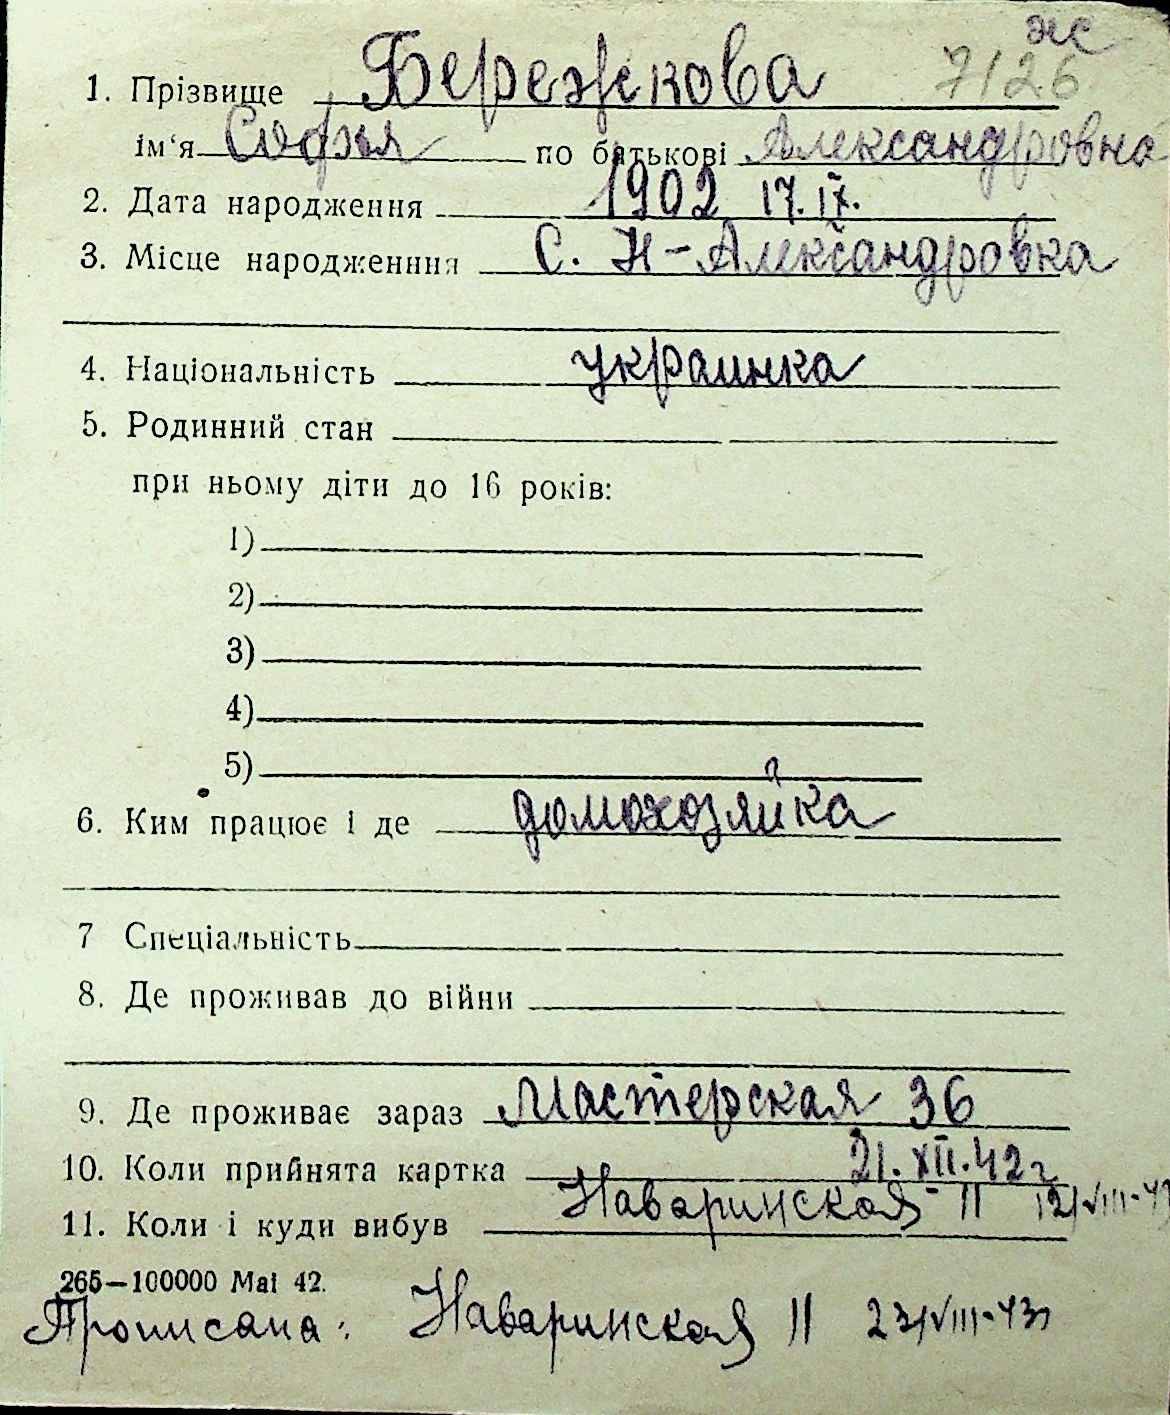 жс
7126
1. Прізвище Бережкова
ім‘я Софья по батькові Александровна
2. Дата народження 1902 17.IX.
3. Місце народженння С. Н-Александровка
4. Національність украинка
5. Родинний стан
при ньому діти до 16 років:
1)
2)
3)
4)
5)
6. Ким працює і де домохозяйка
7 Спеціальність
8. Де проживав до війни
9. Де проживає зараз Мастерская 36
10. Коли прийнята картка 21.XII.42г
11. Коли і куди вибув Наваринская 11 12/VIII-43
265—100000 Mai 42.
Прописана: Наваринская 11 23/VIII-43г